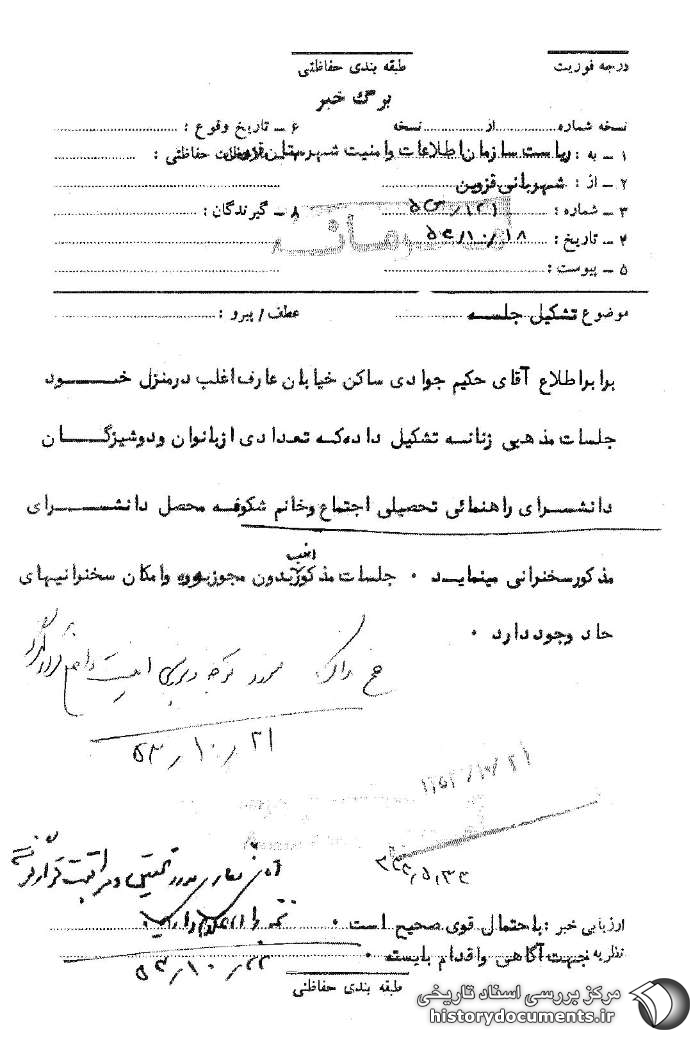 درجه فوریت
طبقه بندی حفاظتی
برگ خبر
نسخه شماره .......... از .......... نسخه
۶ - تاریخ وقوع :
۱ - به : ریاست سازمان اطلاعات وامنیت شهرستان قزوین
حفاظتی :
۲ - از : شهربانی قزوین
۳ - شماره : ۱۲۱/
۸ - گیرندگان :
۴ - تاریخ : ۱۸/۱۰/۵۳
محرمانه
۵ - پیوست :
موضوع تشکیل جلسه
عطف / پیرو :
برابراطلاع آقای حکیم جوادی ساکن خیابان عارف اغلب درمنزل خود
جلسات مذهبی زنانه تشکیل داده که تعدادی ازبانوان ودوشیزگان
دانشسرای راهنمائی تحصیلی اجتماع وخانم شکوفه محصل دانشسرای
مذکورسخنرانی مینماید ۰ جلسات مذکور اغلب بدون مجوزبوده وامکان سخنرانیهای
حاد وجوددارد ۰
مورد توجه
۲۱/۱۰/۵۳
ارزیابی خبر : با احتمال قوی صحیح است ۰
نظریه جهت آگاهی واقدام بایسته ۰
۲۲/۱۰/۵۳
طبقه بندی حفاظتی
مرکز بررسی اسناد تاریخی
historydocuments.ir